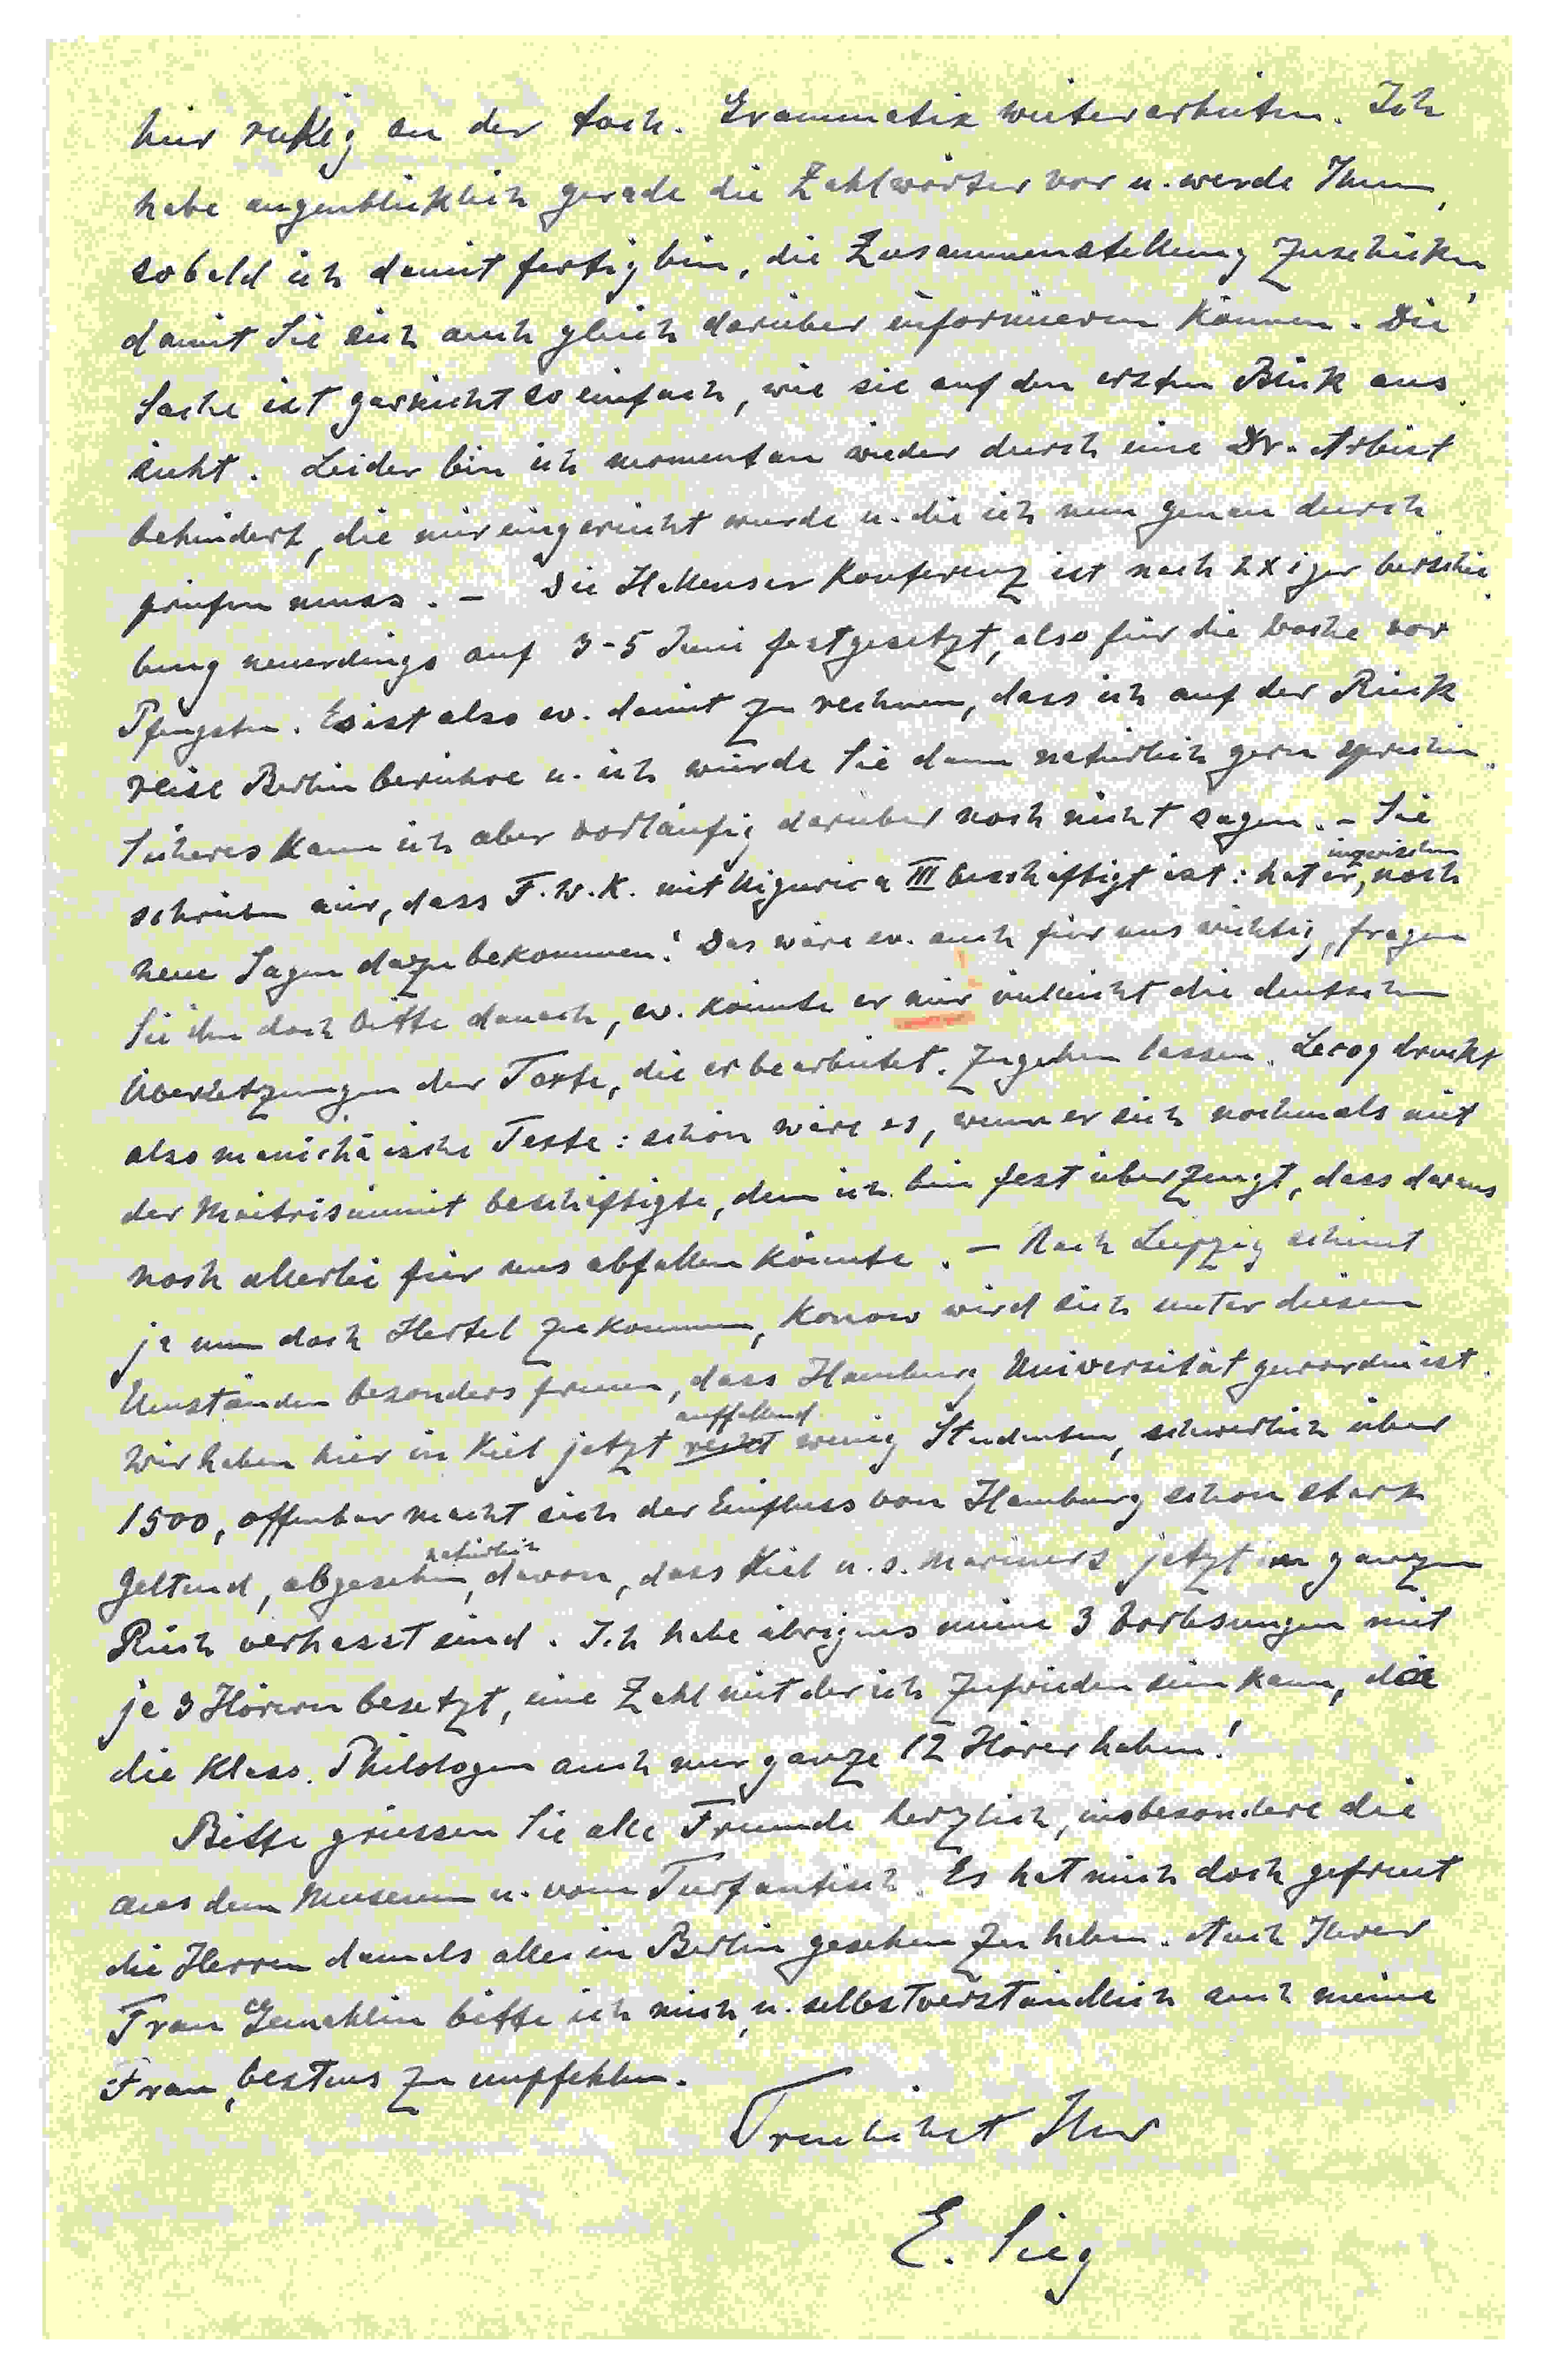 hier ruhig an der toch. Grammatik weiterarbeiten. Ich
habe augenblicklich gerade die Zahlwörter vor u. werde Ihnen,
sobald ich damit fertig bin, die Zusammenstellung zuschicken,
damit Sie sich auch gleich darüber informieren können. Die
Sache ist garnicht so einfach, wie sie auf den ersten Blick aus
sieht. Leider bin ich momentan wieder durch eine Dr. Arbeit
behindert, die mir eingereicht wurde u. die ich nun genau durch
prüfen muss. – Die Hallenser Konferenz ist nach 2Xiger Verschie
bung neuerdings auf 3-5 Juni festgesetzt, also für die Woche vor
Pfingsten. Es ist also ev. damit zu rechnen, dass ich auf der Rück
reise Berlin berühre u. ich würde Sie dann natürlich gern sprechen.
Sicheres kann ich aber vorläufig darüber noch nicht sagen. – Sie
schrieben mir, dass F.W.K. mit Uigurica III beschäftigt ist: hat er, inzwischen noch
neue Sagen dazu bekommen? Das wäre ev. auch für uns wichtig, fragen
Sie ihn doch bitte danach, ev. könnte er mir vielleicht die deutschen
Übersetzungen der Texte, die er bearbeitet, zugehen lassen. Lecoq druckt
also manichäische Texte: schön wäre es, wenn er sich nochmals mit
der Maitrisimit beschäftigte, denn ich bin fest überzeugt, dass daraus
noch allerlei für uns abfallen könnte. – Nach Leipzig scheint
ja nun doch Hertel zu kommen, Konow wird sich unter diesen
Umständen besonders freuen, dass Hamburg Universität geworden ist.
Wir haben hier in Kiel jetzt recht auffallend wenig Studenten, schwerlich über
1500, offenbar macht sich der Einfluss von Hamburg schon stark
geltend, abgesehen, natürlich davon, dass Kiel u. s. Mariners jetzt im ganzen
Reich verhasst sind. Ich habe übrigens meine 3 Vorlesungen mit
je 3 Hörern besetzt, eine Zahl mit der ich zufrieden sein kann, da
die klass. Philologen auch nur ganze 12 Hörer haben!
Bitte grüssen Sie alle Freunde herzlich, insbesondere die
aus dem Museum u. vom Turfantisch. Es hat mich doch gefreut
die Herren damals alle in Berlin gesehen zu haben. Auch Ihrer
Frau Gemahlin bitte ich mich, u. selbstverständlich auch meine
Frau, bestens zu empfehlen.
Treulichst Ihr
E. Sieg